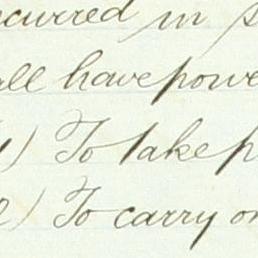 curred in
all have powe
) To take p
) To carry on